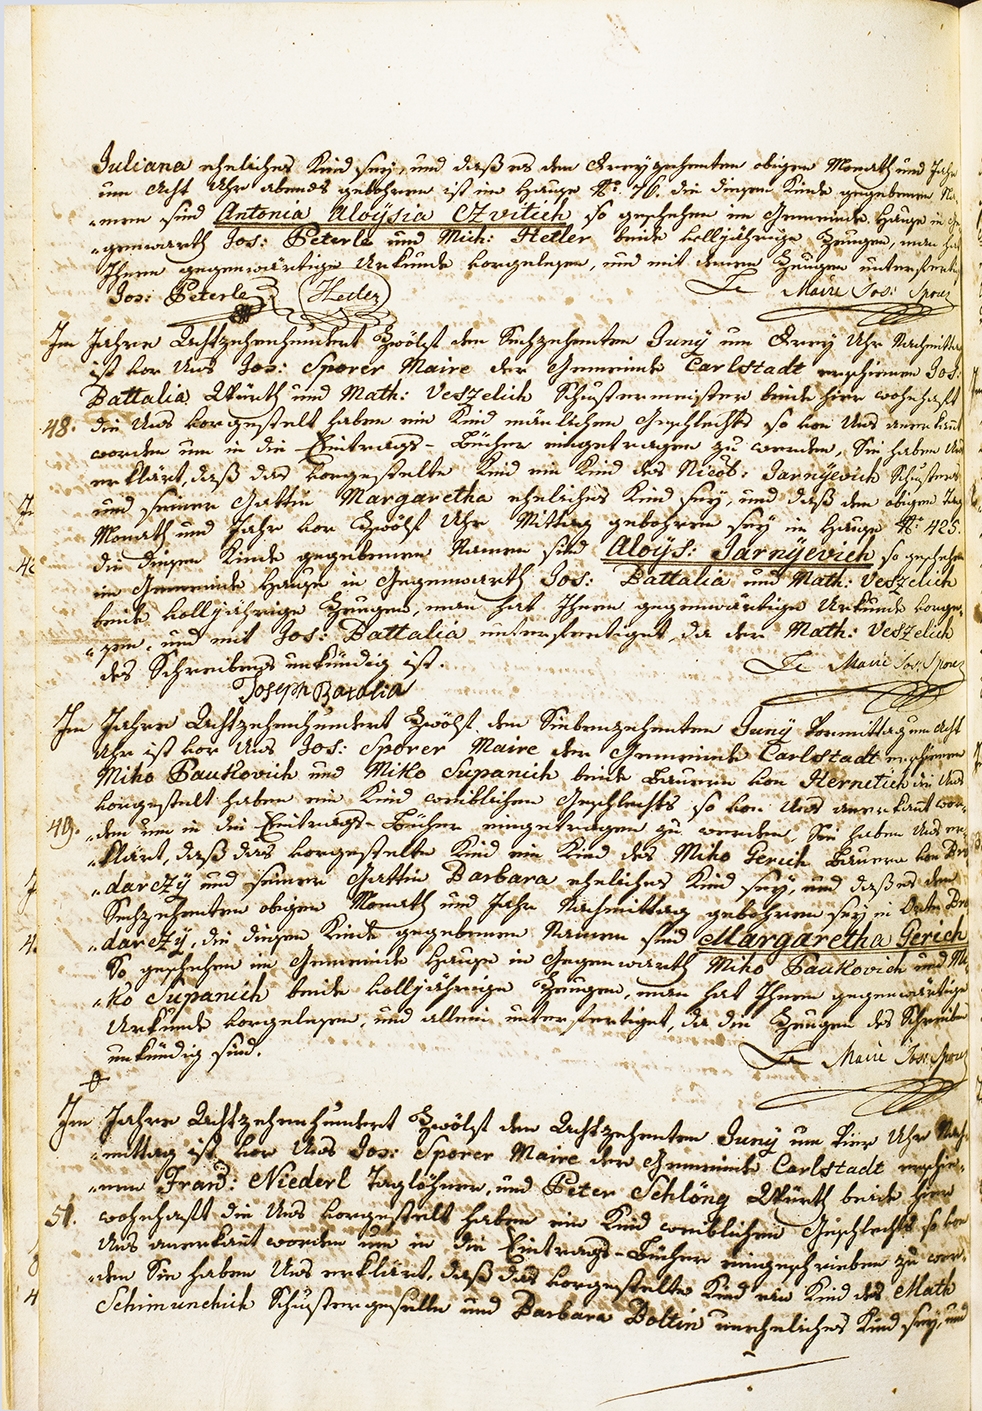 Juliana eheliches Kind sey, und daß es den Dreyzehenten obigen Monath und Jahr
um Acht Uhr abends gebohren ist im Hause No: 76. die diesem Kinde gegebenen Na-
„men sind Antonia Aloÿsia Czvitich, so geschehen im Gemeinde Hause in Ge-
„genwarth Jos: Peterle und Mich: Heller beide volljährige Zeugen, man hat
Ihnen gegenwärtige Urkunde vorgelesen, und mit denen Zeugen unterfertigt
Jos: Peterle Heller Le Maire Jos: Sporer
Im Jahre Achtzehenhundert Zwölf den Sechzehenten Juny um Drey Uhr Nachmittag
ist vor Uns Jos: Sporer Maire der Gemeinde Carlstadt erschienen Jos:
Battalia Würth und Math: Veszelich Schustermeister beide hier wohnhaft
48. die Uns vorgestelt haben ein Kind mänlichen Geschlechts so von Uns anerkant
worden um in die Eintrags-Bücher eingetragen zu werden, Sie haben Uns
erklärt, daß das vorgestelte Kind ein Kind des Nicob: Jarnÿevich Schusters
und seiner Gattin Margaretha eheliches Kind sey, und daß den obigen Tag
Monath und Jahr vor Zwölf Uhr Mittag gebohren sey in Hause No: 425.
die diesem Kinde gegebenen Namen sind Aloÿs: Jarnÿevich so geschehen
im Gemeinde Hause in Gegenwarth Jos: Battalia und Math: Veszelich
beide volljährige Zeugen, man hat Ihnen gegenwärtige Urkunde vorgele-
„sen, und mit Jos: Battalia unterfertiget, da der Math: Veszelich
des Schreibens unkündig ist.
Joseph Batalia Le Maire Jos: Sporer
Im Jahre Achtzehenhundert Zwölf den Siebenzehenten Juny Vormittag um Acht
Uhr ist vor Uns Jos: Sporer Maire der Gemeinde Carlstadt erschienen
Miko Paukovich und Miko Supanich beide Bauern von Hernetich die Uns
vorgestelt haben ein Kind weiblichen Geschlechts so von Uns anerkant wor-
49. „den um in die Eintrags-Bücher eingetragen zu werden, Sie haben Uns er-
„klärt, daß das vorgestelte Kind ein Kind des Miko Gerich Bauern von Bro
„darczÿ und seiner Gattin Barbara eheliches Kind sey, und daß es den
Sechzehenten obigen Monath und Jahr Nachmittag gebohren sey in Orte Bro
„darczÿ, die diesem Kinde gegebenen Namen sind Margaretha Gerich
So geschehen im Gemeinde Hause in Gegenwarth Miko Paukovich und Mi-
„ko Supanich beide volljährige Zeugen, man hat Ihnen gegenwärtige
Urkunde vorgelesen, und allein unterfertiget, da die Zeugen des Schreibens
unkündig sind.
Le Maire Jos: Sporer
Im Jahre Achtzehenhundert Zwölf den Achtzehenten Juny um Vier Uhr Nach-
„mittag ist vor Uns Jos: Sporer Maire der Gemeinde Carlstadt erschie-
„nen Franz: Niederl Taglöhner, und Peter Schlöng Würth beide hier
51. wohnhaft die Uns vorgestelt haben ein Kind weiblichen Geschlechts so von
Uns anerkant worden um in die Eintrags-Bücher eingeschrieben zu wer-
„den Sie haben Uns erklärt, daß das vorgestelte Kind ein Kind des Math
Schimunchich Schustergeselle und Barbara Boltin uneheliches Kind sey, und